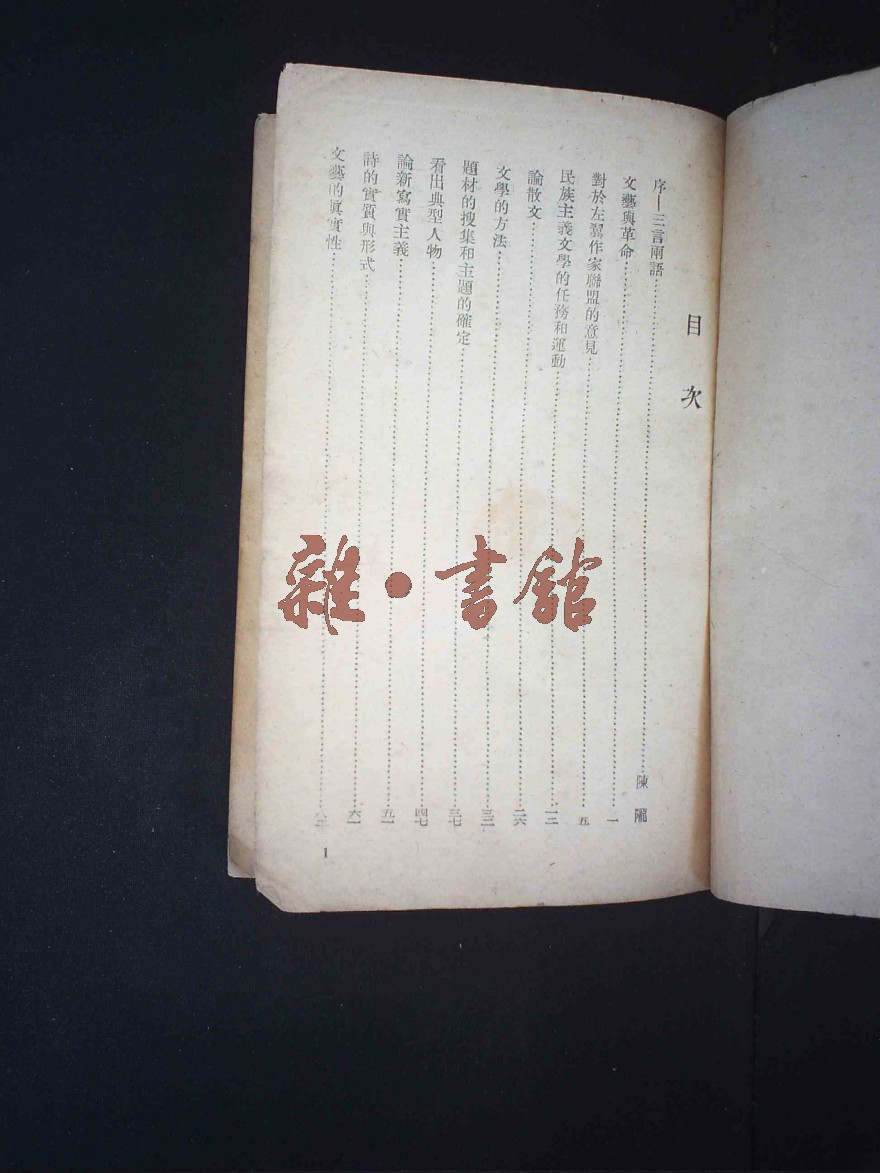 目次
序—三言兩語……陳隴
文藝與革命……一
對於左翼作家聯盟的意見……五
民族主義文學的任務和運動……一二
論散文……二六
文學的方法……三二
題材的搜集和主題的確定……三七
看出典型人物……四七
論新寫實主義……五一
詩的實質與形式……六一
文藝的眞實性……
1
雜·書館